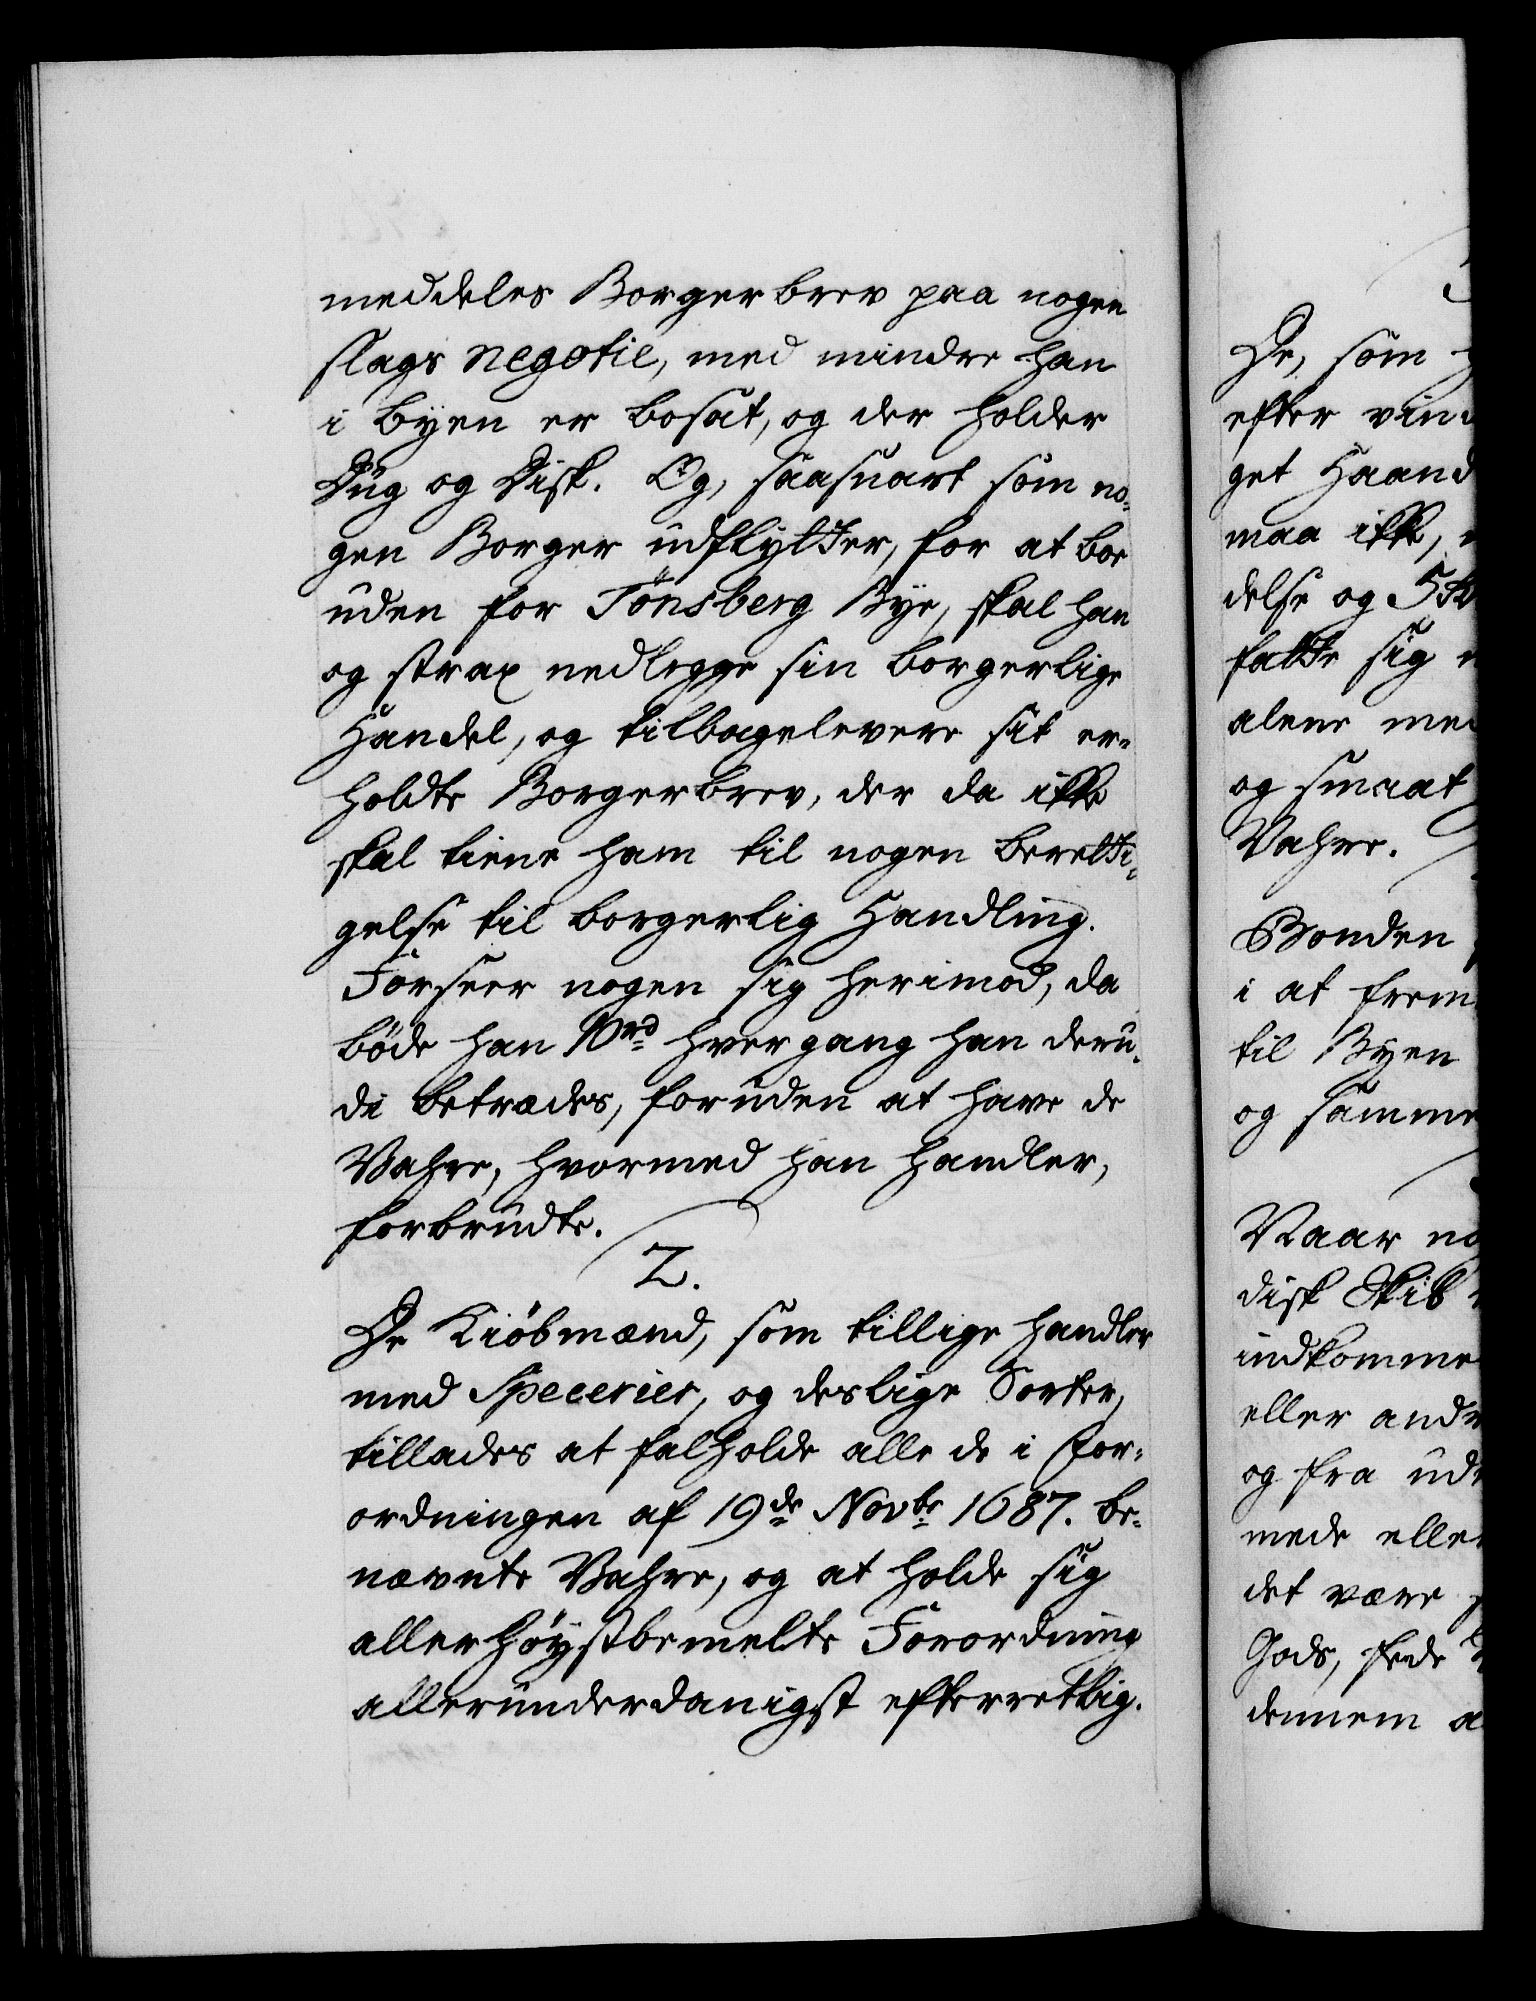 meddeles Borgerbrev paa nogen
slags negotie, med mindre han
i Byen er bosat, og der holder
Dug og Disk. Og, saasnart som no-
gen Borger udflytter, for at boe
uden for Tönsberg Bye, skal han
og strax nedlegge sin borgerlige
Handel, og tilbagelevere sit er-
holdte Borgerbrev, der da ikke
skal tiene ham til nogen beretti-
gelse til borgerlig Handling.
Forseer nogen sig herimod, da
böde han 10 rd hver gang han deru-
di betrædes, foruden at have de
Vahre, hvormed han handler,
forbrudte.
2.
De Kiöbmænd, som tillige handler
med Specerier, og deslige Sorter,
tillades at falholde alle de i For-
ordningen af 19de Novbr 1687. be-
nævnte Vahre, og at holde sig
allerhöystbemelte Forordning
allerunderdanigst efterretlig.
De, som
efter vin
get Haand
maa ikke,
delse og
fatte sig
alene med
og smaat
Vahre.
Bonden
i at frem
til Byen
og samme
Naar no
disk Skib
indkomme
eller andr
og fra ud
mede eller
det være
Gods, skede
dennem a